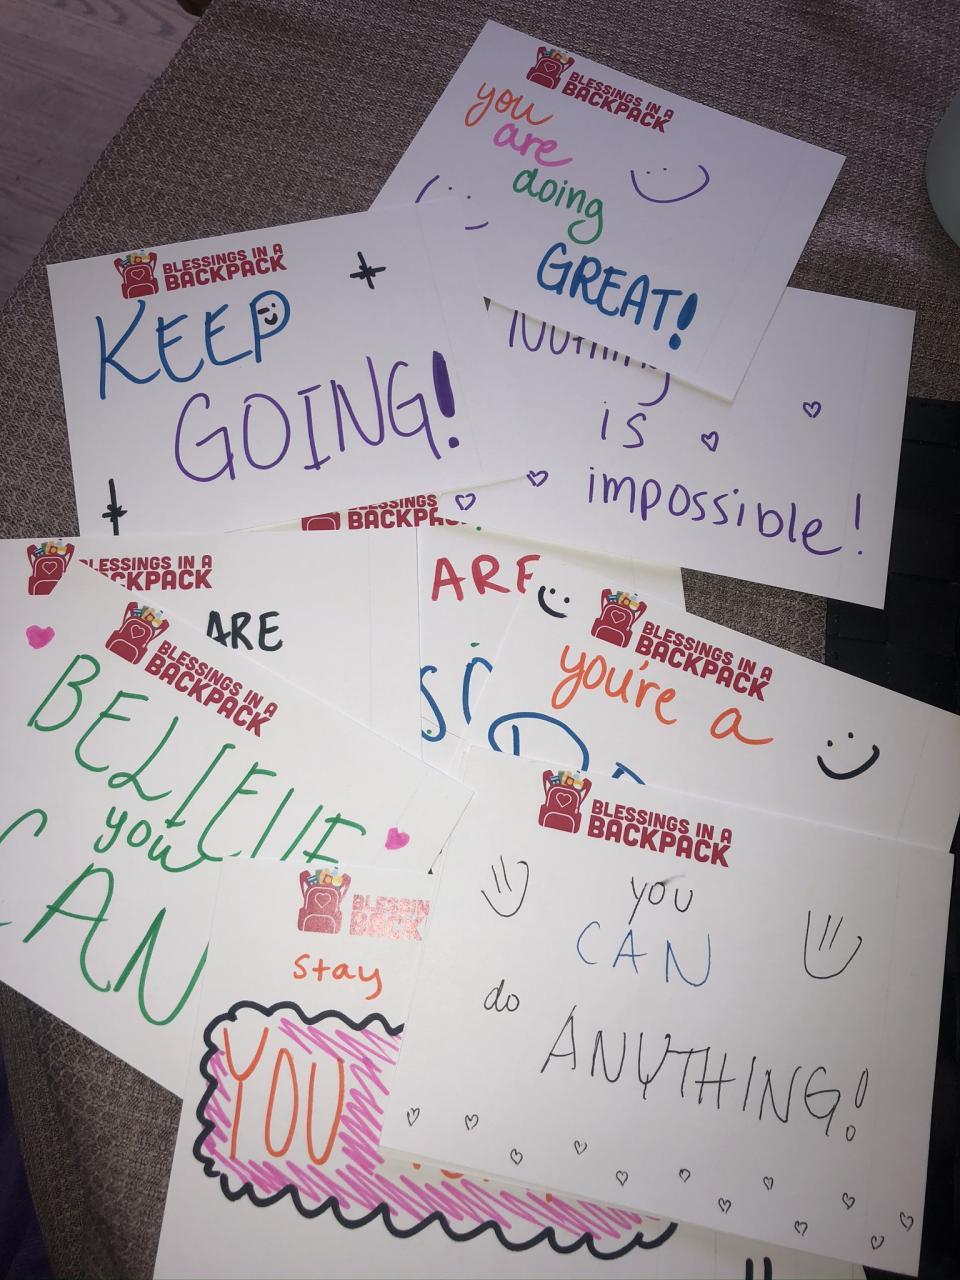 BLESSINGS IN A
BACKPACK
you
are
doing
GREAT!
BLESSINGS IN A
BACKPACK
KEEP
GOING!
Nothing
is
impossible!
BLESSINGS IN A
BACKPACK
ARE
ARE
BLESSINGS IN A
BACKPACK
you're a
BLESSINGS IN A
BACKPACK
BELIEVE
you
CAN
BLESSINGS IN A
BACKPACK
you
CAN
do
ANYTHING!
BLESSIN
BACK
stay
YOU